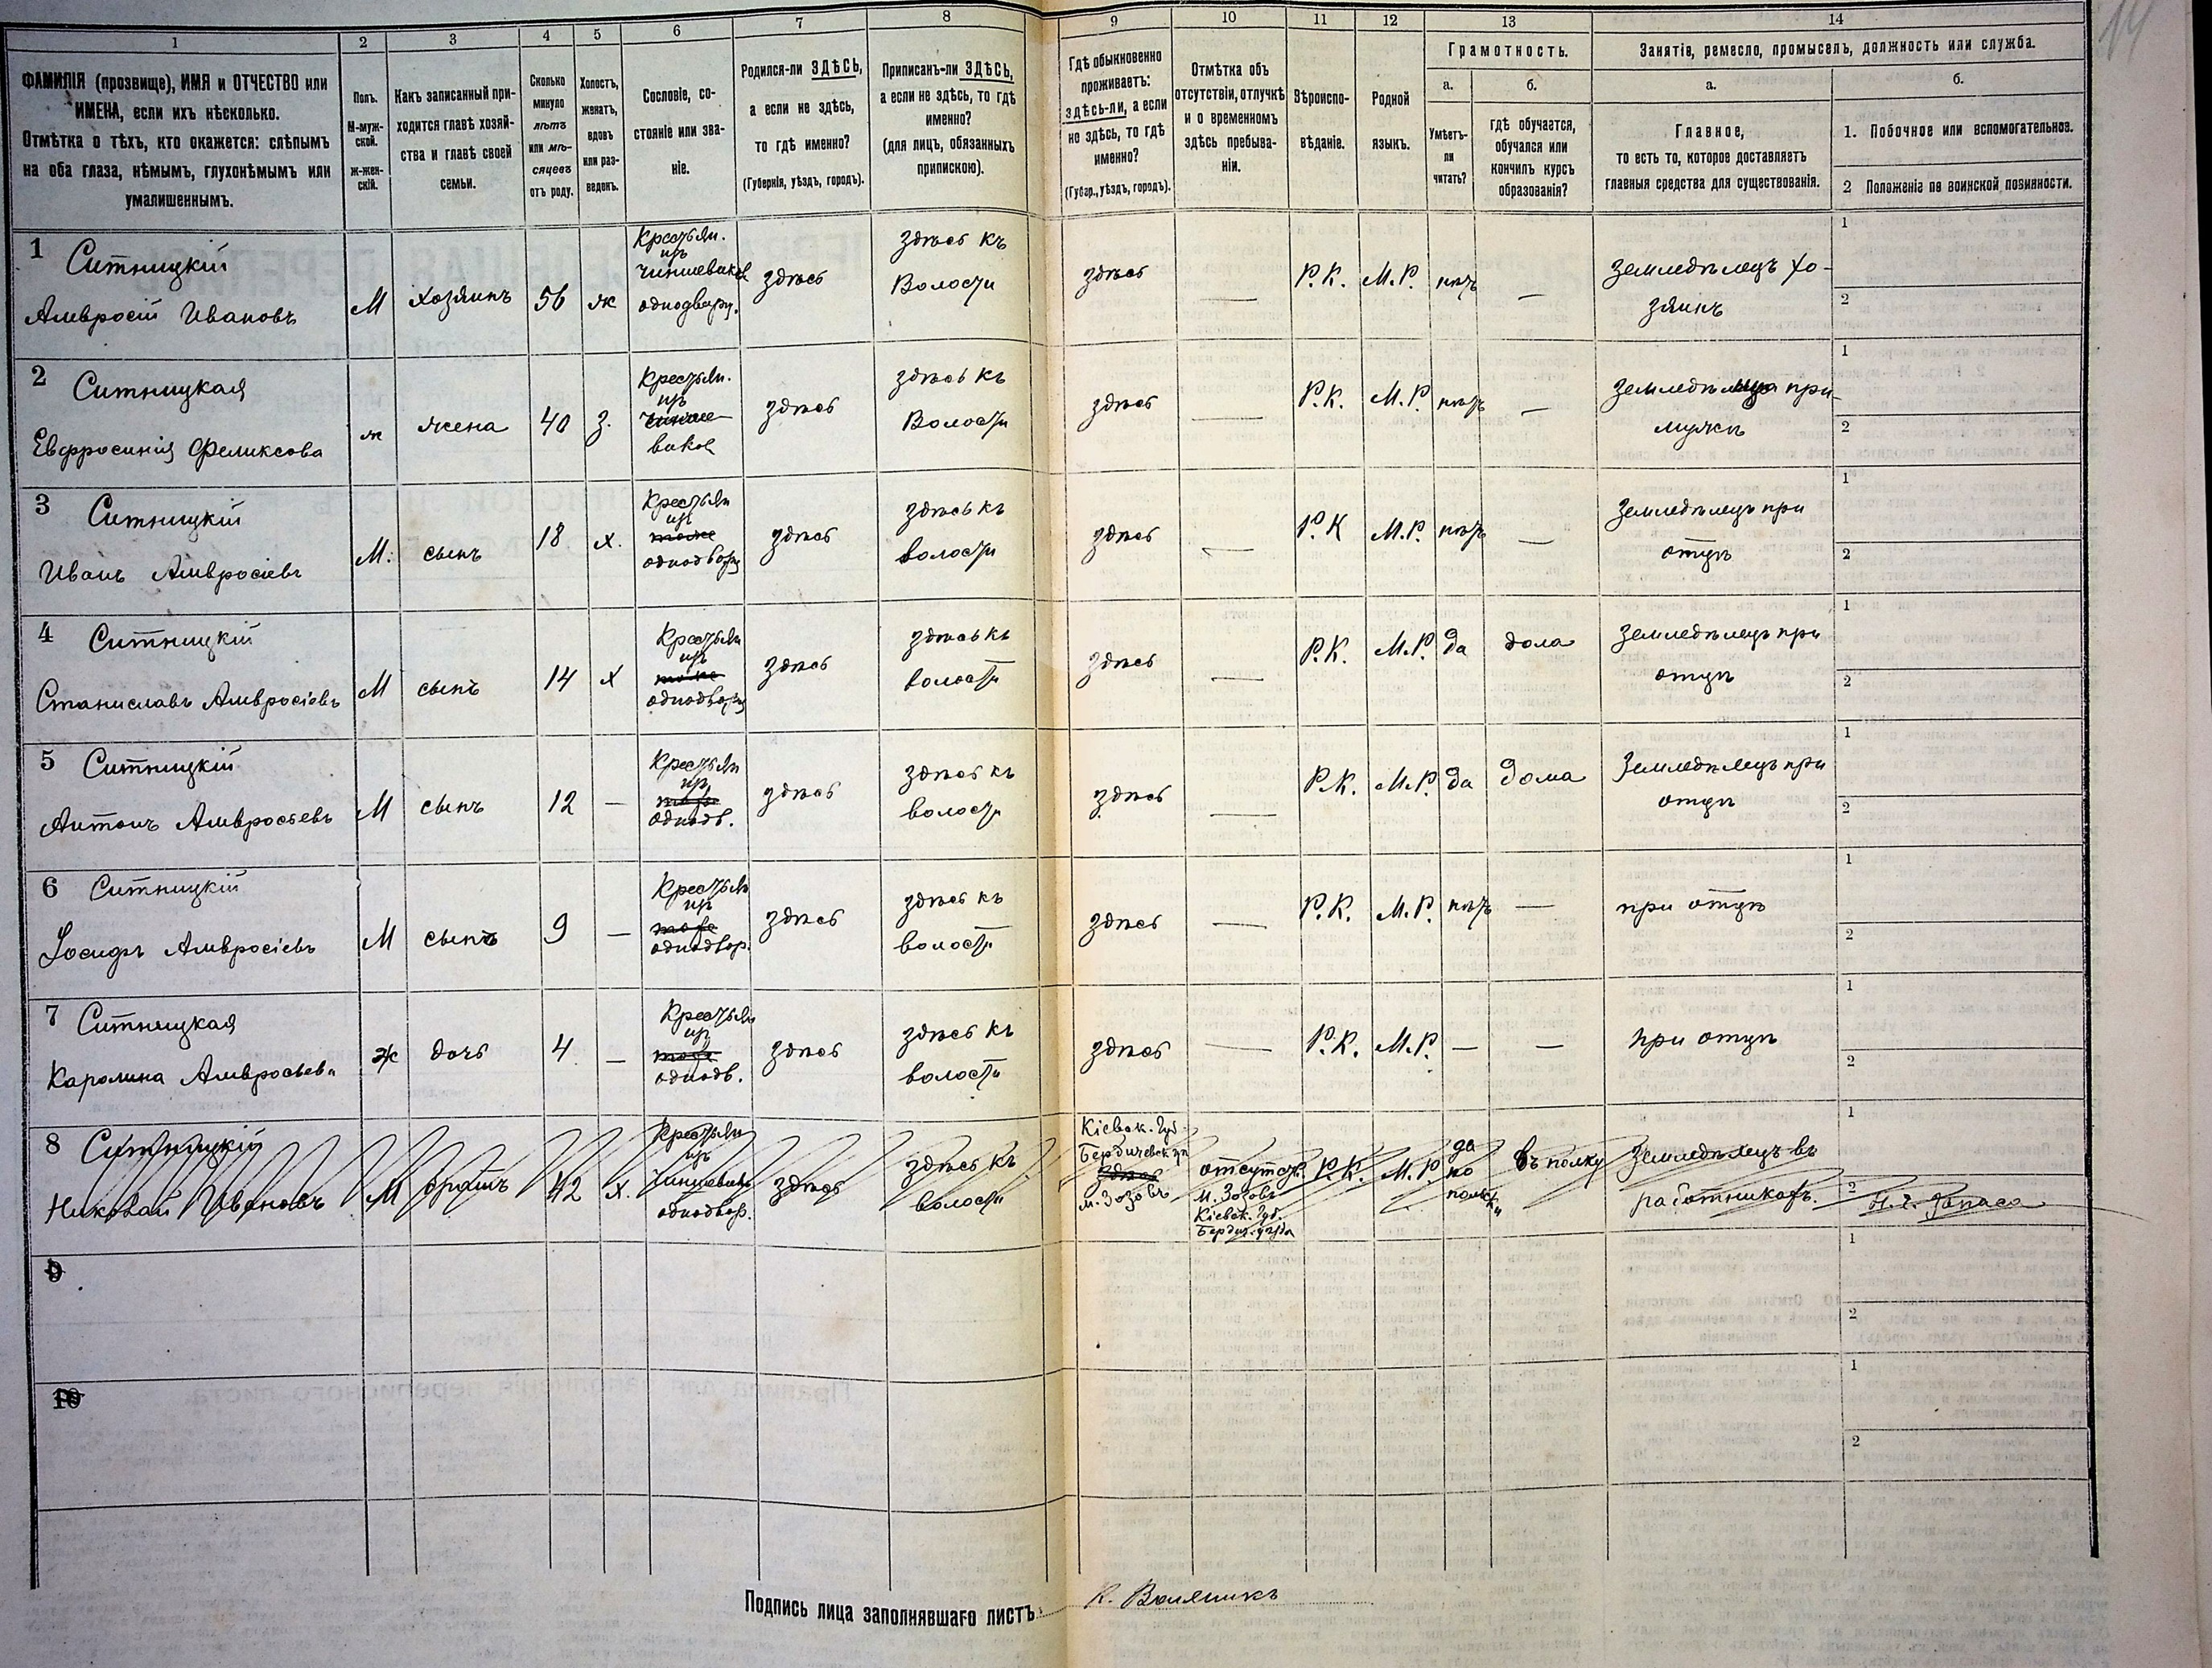 14
1
2
3
4
5
6
7
8
9
10
11
12
13
14
ФАМИЛІЯ (прозвище), ИМЯ и ОТЧЕСТВО или
ИМЕНА, если ихъ нѣсколько.
Отмѣтка о тѣхъ, кто окажется: слѣпымъ
на оба глаза, нѣмымъ, глухонѣмымъ или
умалишеннымъ.
Полъ.
М-муж-
ской.
ж-жен-
скій.
Какъ записанный при-
ходится главѣ хозяй-
ства и главѣ своей
семьи.
Сколько
минуло
лѣтъ
или мѣ-
сяцевъ
отъ роду.
Холостъ,
женатъ,
вдовъ
или раз-
веденъ.
Сословіе, со-
стояніе или зва-
ніе.
Родился-ли ЗДѢСЬ,
а если не здѣсь,
то гдѣ именно?
(Губернія, уѣздъ, городъ).
Приписанъ-ли ЗДѢСЬ,
а если не здѣсь, то гдѣ
именно?
(для лицъ, обязанныхъ
припискою).
Гдѣ обыкновенно
проживаетъ:
здѣсь-ли, а если
не здѣсь, то гдѣ
именно?
(Губер., уѣздъ, городъ).
Отмѣтка объ
отсутствіи, отлучкѣ
и о временномъ
здѣсь пребыва-
ніи.
Вѣроиспо-
вѣданіе.
Родной
языкъ.
Грамотность.
а.
Умѣетъ-
ли
читать?
б.
гдѣ обучается,
обучался или
кончилъ курсъ
образованія?
Занятіе, ремесло, промыселъ, должность или служба.
а.
Главное,
то есть то, которое доставляетъ
главныя средства для существованія.
б.
1. Побочное или вспомогательное.
2 Положеніе по воинской повинности.
1 Ситницкій
Амвросій Ивановъ
М
хозяинъ
56
ж
Крестьян.
изъ
чиншевиков
однодворц.
здѣсь
здѣсь къ
Волости
здѣсь
—
Р.К.
М.Р.
нѣтъ
—
Земледѣлецъ хо-
зяинъ
1
2
2 Ситницкая
Евфросинія Феликсова
ж
жена
40
з.
Крестьян.
изъ
чинше
виков
здѣсь
здѣсь къ
Волости
здѣсь
—
Р.К.
М.Р.
нѣтъ
—
Земледѣлица при
мужѣ
1
2
3 Ситницкій
Иванъ Амвросіевъ
М.
сынъ
18
х.
Крестьян
изъ
тоже
однодворц
здѣсь
здѣсь къ
волости
здѣсь
—
Р.К
М.Р.
нѣтъ
—
Земледѣлецъ при
отцѣ
1
2
4 Ситницкій
Станиславъ Амвросіевъ
М
сынъ
14
х
Крестьян
изъ
тоже
однодворц
здѣсь
здѣсь къ
волости
здѣсь
—
Р.К.
М.Р.
да
дома
Земледѣлецъ при
отцѣ
1
2
5 Ситницкій
Антонъ Амвросьевъ
М
сынъ
12
—
Крестьян
изъ
тоже
однодв.
здѣсь
здѣсь къ
волости
здѣсь
—
Р.К.
М.Р.
да
дома
Земледѣлецъ при
отцѣ
1
2
6 Ситницкій
Іосифъ Амвросіевъ
М
сынъ
9
—
Крестьян
изъ
тоже
однодвор.
здѣсь
здѣсь къ
волости
здѣсь
—
Р.К.
М.Р.
нѣтъ
—
при отцѣ
1
2
7 Ситницкая
Каролина Амвросьева
ж
дочь
4
—
Крестьян
изъ
тоже
однодв.
здѣсь
здѣсь къ
волости
здѣсь
—
Р.К.
М.Р.
—
—
при отцѣ
1
2
8 Ситницкій
Николай Ивановъ
М
братъ
42
х.
Крестьян
изъ
чиншевиковъ
однодвор.
здѣсь
здѣсь къ
волости
Кіевск. Губ.
Бердичевск. уѣ
здѣсь
м. Зозовъ
отсутств.
М. Зозовъ
Кіевск. Губ.
Бердич. уѣзда
Р.К.
М.Р.
да
по
польски
въ полку
Земледѣлецъ въ
работникахъ.
1
2
Н.ч. Запаса
9
1
2
10
1
2
Подпись лица заполнявшаго листъ: